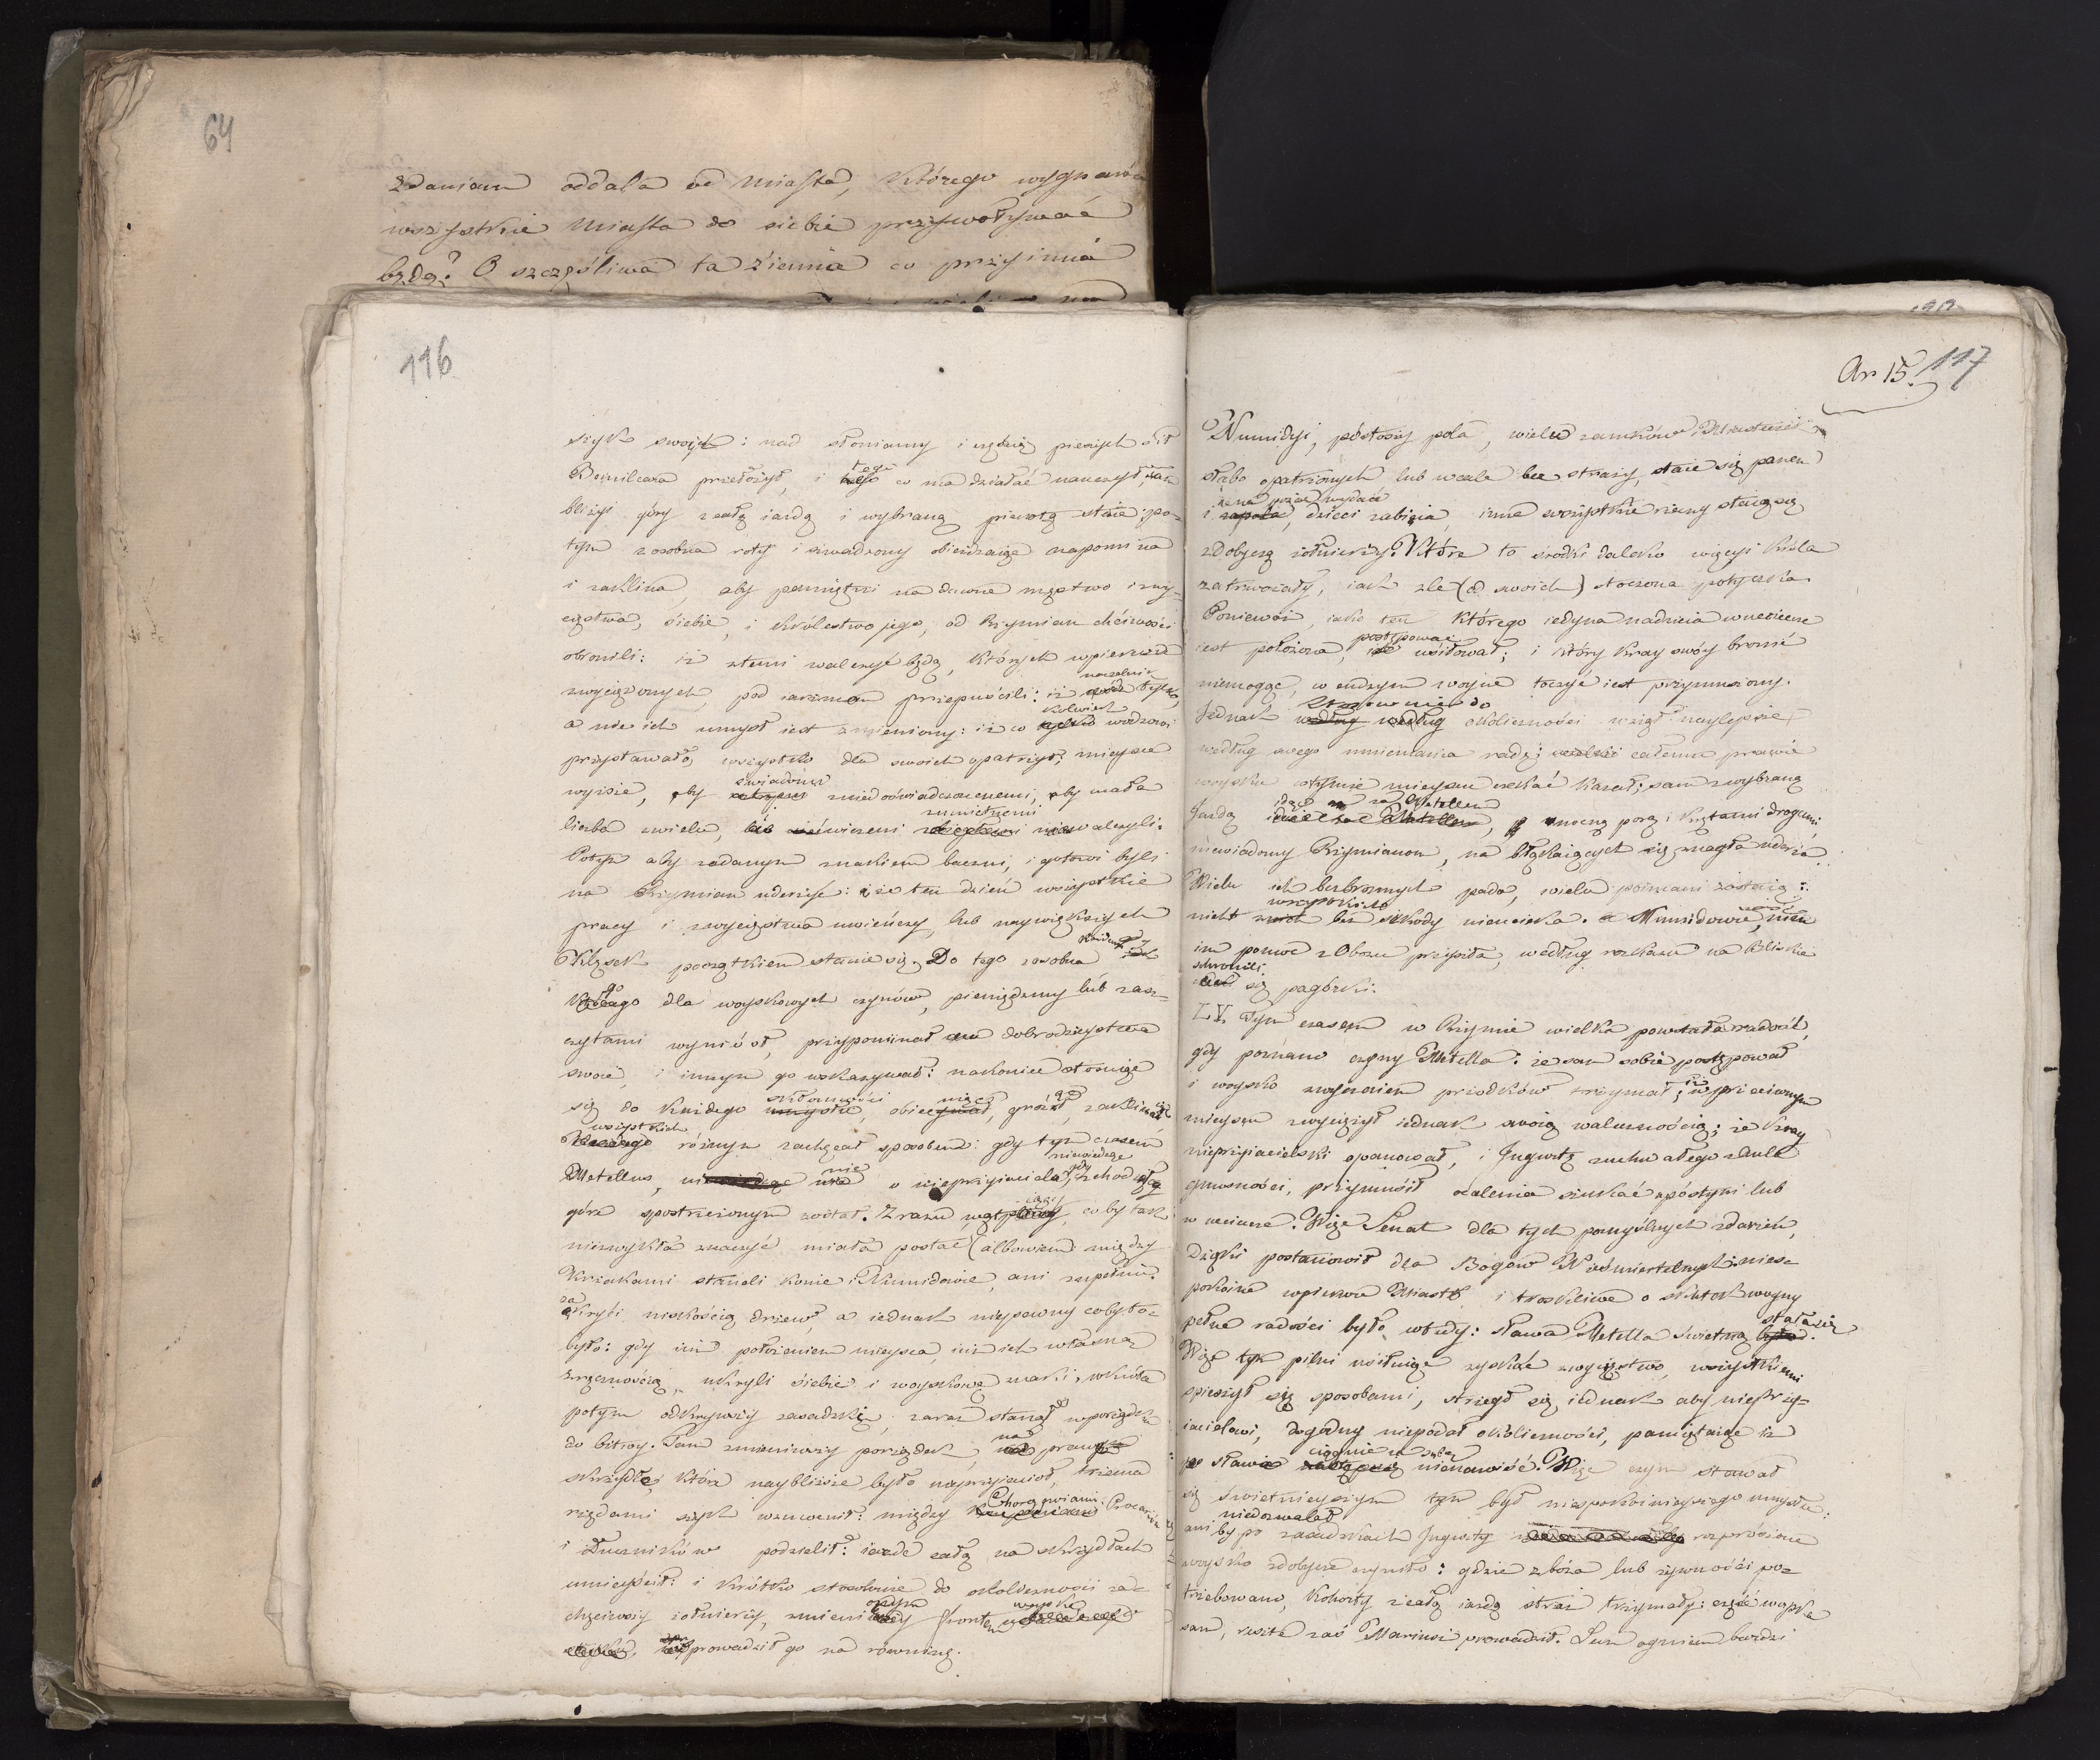 64
zdaniem oddala od Miasta, którego wygnańca
wszystkie Miasta do siebie przyswoływać
będą? O szczęśliwa ta ziemia co przyimie
116
szyk swoich: nad słoniami i częścią pieszych sił
Bomilcara przełożył, i tego co ma działać nauczył, sam
bliżej góry z całą iazdą i wybraną piechotą staie: po-
tym z osobna roty i szwadrony obieżdzaiąc napomina
i zaklina, aby pamiętni na dawne męstwo i zwy-
cięstwa, siebie, i królestwo jego, od Rzymian chciwości
obronili: iż z temi walczyć będą, których wpierw
zwyciężonych, pod iarzmem przepuścili: iż naczelnik tylko,
a nie ich umysł iest zmieniony: iż co kolwiek wodzowi
przystawało, wszystko dla swoich opatrzył, mieysce
wyższe, aby świadomi z niedoświadczonemi, aby mała
liczba z wielu, niewalczyli.
Potym aby zadanym znakiem baczni, i gotowi byli
na Rzymian uderzyć: że ten dzień wszystkie
pracy i zwycięstwa uwieńczy, lub naywiększych
Klęsek początkiem stanie się. Do tego z osobna każdego
którego dla woyskowych czynów, pieniędzmy lub zasz-
czytami wyniósł, przypominał mu dobrodzieystwa
swoie, i innym go wskazywał: nakoniec stosuiąc
się do każdego skłonności, obiecuiąc, grożąc, zaklinaiąc
wszystkich różnym zachęcał sposobem: gdy tym czasem
Metellus, niewiedząc nic o nieprzyiacielu, gdy zchodząc z
góry spostrzeżonym został. Z razu wątpiący, coby tak
niezwykła znaczyć miała postać (albowiem między
Krzakami stanęli konie i Numidowie, ani zupełnie
zakryci niskością drzew, a iednak niepewny coby to
było: gdy iuż położeniem mieysca, iuż ich własną
zręcznością, ukryli siebie i woyskowe znaki; wkrótce
potym odkrywszy zasadzkę, zaraz stanął w porządku
do bitwy. Tam zmieniwszy porządek, na prawym
skrzydle, które naybliższe było nieprzyiaciół, trzema
rzędami szyk wzmocnił: między Chorągwiami Procarzów
i Łuczników podzielił: iazdę całą na skrzydłach
umieścił: i krótko stosownie do okoliczności za-
chęciwszy żołnierzy, frontem woysko
sprowadził go na równinę.
Ar 15. 117
Numidyi, pustoszy pola, wielu zamków i Miasteczek
słabo opatrzonych lub wcale bez straży, staie się panem
i, dzieci zabiia, inne wszystkie rzeczy staią się
zdobyczą żołnierzy. Które to środki daleko więcey Króla
zatrwożały, iak źle (od swoich) stoczona potyczka.
Ponieważ, iako ten którego iedyna nadzieia w ucieczce
iest położona, postępować usiłował; i który kray swóy bronić
niemogąc, w cudzym woynę toczyć iest przymuszony.
Jednak stosownie do okoliczności wziął naylepsze
według swego mniemania radę; całemu prawie
woysku w tymże mieyscu czekać kazał; sam z wybraną
Jazdą idąc za Metellem, nocną porą i krętemi drogami,
niewiadomy Rzymianom, na błąkaiących się z nagła uderza.
Wielu ich bezbronnych pada, wielu poimani zostaią:
nicht bez szkody nieucieka. Numidowie, nim
im pomoc z Obozu przyszła, według rozkazu na bliskie
schronili się pagórki.
LV. Tym czasem w Rzymie wielka powstała radość,
gdy poznano czyny Metella: że sam sobie postępował
i woysko zwyczaiem przodków trzymał; iż w przeciwnym
mieyscu zwyciężył iednak swoią walecznością; że Kray
nieprzyiacielski opanował, i Jugurtę zuchwałego z Aula
gnuśności, przymusił ocalenia szukać w pustyni lub
w ucieczce. Więc Senat dla tych pomyślnych zdarzeń,
Dzięki postanowił dla Bogów Nieśmiertelnych: nies-
pokoine wpierw Miasto, i troskliwe o skutek woyny
pełne radości było wtedy: sława Metella świetną stała się.
Więc tym pilni usiłuiąc zyskać zwycięstwo, wszystkiemi
spieszył się sposobami, strzegł się iednak aby nieprzy-
iacielowi, dogodney niepodał okoliczności, pamiętaiąc iż
sława ciągnie za sobą nienawiść. Więc czym stawał
się świetnieyszym tym był niespokoinieyszego umysłu:
ani niedozwalał by po zasadzkach Jugurty rozproszone
woysko zdobycze czyniło: gdzie zboża lub żywności po-
trzebowano, Kohorty z całą iazdą straż trzymały: część woyska
sam, resztę zaś Mariusz prowadził. Lecz ogniem bardziey